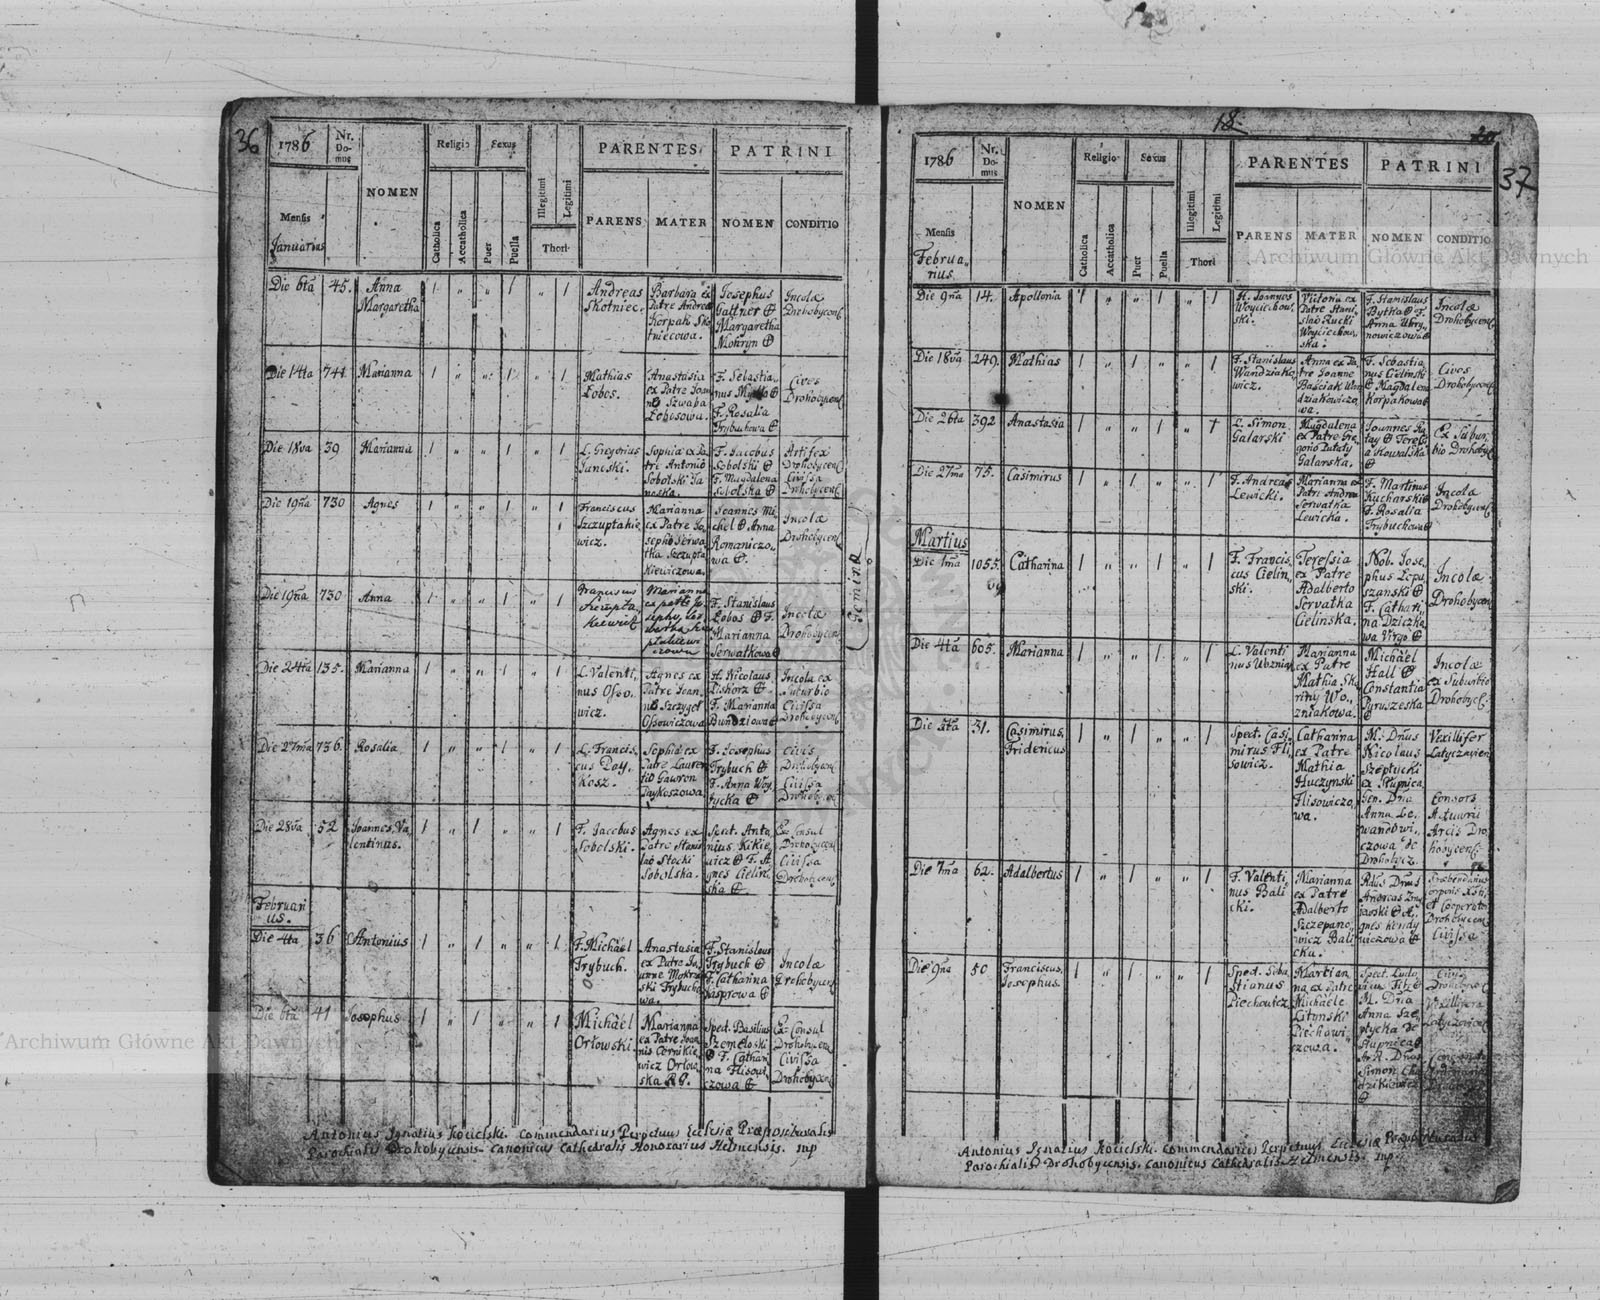 36
1786
Nr. Domus
NOMEN
Religio
Sexus
PARENTES
PATRINI
Mensis
Januarius
Catholica
Accatholica
Puer
Puella
Illegitimi
Legitimi
Thori
PARENS
MATER
NOMEN
CONDITIO
Die 6ta 45. Anna
Margaretha
Andreas
Skotniec.
Barbara ex
Patre Andrea
Korpak Sko
tniecowa.
Josephus
Gattner &
Margaretha
Mohryn &
Incolæ
Drohobycens
Die 14ta 744 Marianna
Mathias
Łobos.
Anastasia
ex Patre Joan
ne Szwaba
Łobosowa.
F. Sebastia
nus
F. Rosalia
Trybuchowa &
Cives
Drohobycens
Die 18va 39 Marianna
L. Gregorius
Janeski.
Sophia ex Pa
tre Antonio
Sobolski Ja
neska.
F. Jacobus
Sobolski &
F. Magdalena
Sobolska &
Artifex
Drohobycens
Civissa
Drohobycens
Die 19na 730 Agnes
Franciscus
Szczuptakie
wicz.
Marianna
ex Patre Jo
sepho Serwa
tka Szczupta
kiewiczowa.
Joannes Mi
chel & Anna
Romaniczo
wa &.
Incolæ
Drohobycens
Die 19na 730 Anna
Franciscus
Marianna
ex patre Jo
sepho
F. Stanislaus
Łobos & F.
Marianna
Serwatkowa &
Incolæ
Drohobycens
Gemina
Die 24ta 135. Marianna
L. Valenti
nus Osso
wicz.
Agnes ex
Patre Joan
ne Szczygeł
Ossowiczowa
H. Nicolaus
Piskorz &
F. Marianna
Bundziowa &
Incola ex
Suburbio
Civissa
Drohobycens
Die 27ma 736. Rosalia
L. Francis
cus Pay
kosz.
Sophia ex
Patre Lauren
tio Gawron
Paykoszowa.
F. Josephus
Trybuch &
F. Anna Woy
tycka &
Civis
Drohobycens
Civissa
Drohobycens
Die 28va 52 Joannes, Va
lentinus.
F. Jacobus
Sobolski.
Agnes ex
Patre Stanis
lao Stocki
Sobolska.
Spect. Anto
nius Kikie
wicz & F. A
gnes Cielin
ska &
Ex Consul
Drohobycens
Civissa
Drohobycens
Februari
us.
Die 4ta 36 Antonius
F. Michaël
Trybuch.
Anastasia
ex Patre Jo
anne Mokrzy
ski Trybucho
wa.
F. Stanislaus
Trybuch &
F. Catharina
Kasprowa &
Incolæ
Drohobycens
Die 6ta 41 Josephus
Michaël
Orłowski.
Marianna
ex Patre Joan
nis Cernikie
wicz Orłow
ska
Spect. Basilius
Szemeloski
& F. Cathari
na Flisowi
czowa &
Ex-Consul
Drohobycens
Civissa
Drohobycens
Antonius Ignatius Kocielski. Commendarius Perpetuus Ecclesiæ Præposituralis
Parochialis Drohobycensis. Canonicus Cathedralis Honorarius Helnensis. mp
18.
37
1786
Nr. Domus
NOMEN
Religio
Sexus
PARENTES
PATRINI
Mensis
Februa
rius
Catholica
Accatholica
Puer
Puella
Illegitimi
Legitimi
Thori
PARENS
MATER
NOMEN
CONDITIO
Die 9na 14. Apollonia
H. Joannes
Woyciechow
ski.
Victoria ex
Patre Stani
slao Rucki
Woyciechow
ska.
F. Stanislaus
Bytka & F.
Anna Ubry
nowiczowa &
Incolæ
Drohobycens
Die 18va 249. Mathias
F. Stanislaus
Wandziako
wicz.
Anna ex Pa
tre Joanne
Baściak Wan
dziakowiczo
wa.
F. Sebastia
nus Cielinski
& Magdalena
Korpakowa &
Cives
Drohobycens
Die 26ta 392 Anastasia
L. Simon
Galarski
Magdalena
ex Patre Gre
gorio Putaty
Galarska.
Joannes Ra
tay & Teres
a Kowalska
&
Ex Subur
bio Drohobyc
Die 27ma 75. Casimirus
F. Andreas
Lewicki.
Marianna ex
Patre Andrea
Serwatka
Lewicka.
F. Martinus
Kucharski &
F. Rosalia
Trybuchowa &
Incolæ
Drohobycens
Martius
Die 1ma 1055. Catharina
F. Francis
cus Cielin
ski.
Teressia
ex Patre
Adalberto
Servatka
Cielinska.
Nob. Jose
phus Lepu
szanski &
F. Cathari
na Dziczko
wa Virgo &
Incolæ
Drohobycens
Die 4ta 605. Marianna
L. Valenti
nus
Marianna
ex Patre
Mathia Sk
riny Wo
zniakowa.
Michaël
Hall &
Constantia
Pyruszeska
&
Incolæ
ex Suburbio
Drohobycens
Die 5ta 31. Casimirus,
Fridericus
Spect. Casi
mirus Fli
sowicz.
Catharina
ex Patre
Mathia
Huczynski
Flisowiczo
wa.
M. Dnus
Nicolaus
Szeptycki
ex Słupnica
Gen. Dna
Anna Le
wandowi
czowa de
Drohobycz.
Vexillifer
Latyczovien
Consors
Arcis Dro
hobycens
Die 7ma 62. Adalbertus
F. Valenti
nus Bali
cki.
Marianna
ex Patre
Adalberto
Szczepano
wicz Bali
cka.
Rdus Dnus
Andreas
& A
gnes Kendy
wiczowa &
Præbendarius
Corporis Xsti
et Cooperator
Drohobycens
Civissa
Die 9na 50 Franciscus,
Josephus.
Spect. Seba
stianus
Piechowicz
Marian
na ex Patre
Michaële
Litynski
Piechowi
czowa.
Spect. Ludo
vicus Fitz &
M. Dna
Anna Sze
ptycka de
Słupnica &
Dnus
Simon
&
Civis
Drohobycens
Vexillifera
Latyczovien
Antonius Ignatius Kocielski. Commendarius Perpetuus Ecclesiæ Præposituralis
Parochialis Drohobycensis. Canonicus Cathedralis Helnensis. mp.
Archiwum Główne Akt Dawnych
Archiwum Główne Akt Dawnych